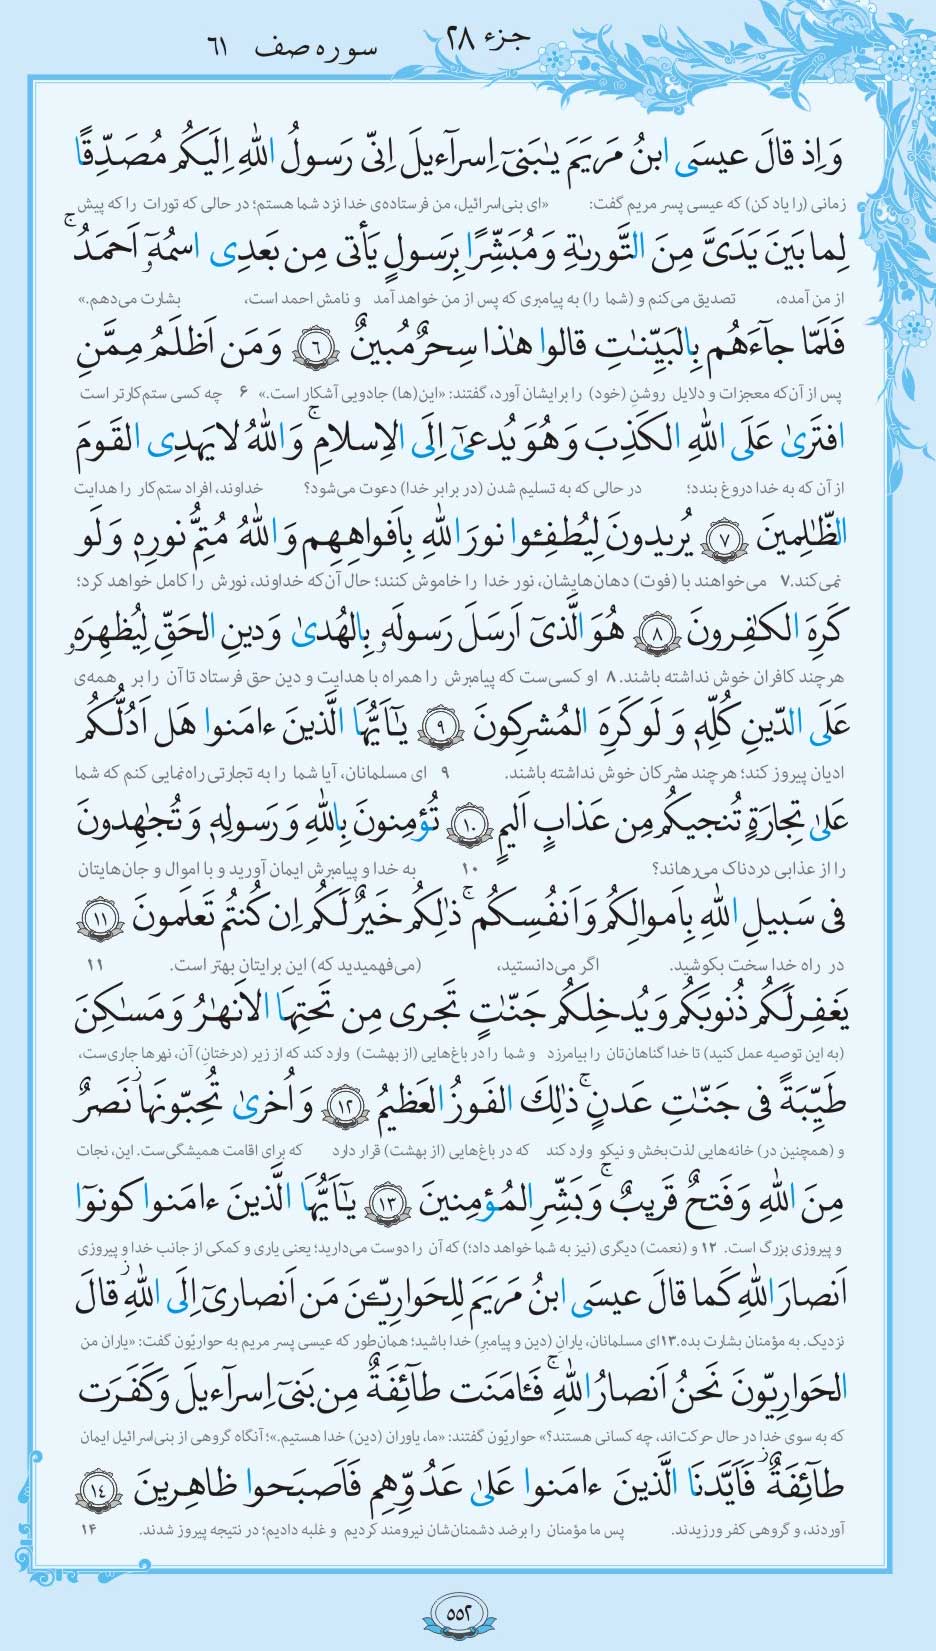 جزء ۲۸
سوره صف ۶۱
وَاِذ قالَ عیسَی ابنُ مَریَمَ یٰبَنیٓ اِسرآءیلَ اِنّی رَسولُ اللّٰهِ اِلَیکُم مُصَدِّقًا
زمانی (را یاد کن) که عیسی پسر مریم گفت: «ای بنی‌اسرائیل، من فرستاده‌ی خدا نزد شما هستم؛ در حالی که تورات را که پیش
لِما بَینَ یَدَیَّ مِنَ التَّورىٰةِ وَ مُبَشِّرًا بِرَسولٍ یَأتی مِن بَعدِی اسمُهٓ اَحمَدُ ۚ
از من آمده، تصدیق می‌کنم و (شما را) به پیامبری که پس از من خواهد آمد و نامش احمد است، بشارت می‌دهم.»
فَلَمّا جآءَهُم بِالبَیِّنٰتِ قالوا هٰذا سِحرٌ مُبینٌ ﴿٦﴾ وَ مَن اَظلَمُ مِمَّنِ
پس از آن‌که معجزات و دلایل روشنِ (خود) را برایشان آورد، گفتند: «این(ها) جادویی آشکار است.» ۶ چه کسی ستم‌کارتر است
افتَرىٰ عَلَی اللّٰهِ الکَذِبَ وَ هُوَ یُدعىٰٓ اِلَی الاِسلامِ ۚ وَ اللّٰهُ لا یَهدِی القَومَ
از آن که به خدا دروغ بندد؛ در حالی که به تسلیم شدن (در برابر خدا) دعوت می‌شود؟ خداوند، افراد ستم‌کار را هدایت
الظّٰلِمینَ ﴿٧﴾ یُریدونَ لِیُطفِـٔوا نورَ اللّٰهِ بِاَفواهِهِم وَ اللّٰهُ مُتِمُّ نورِهٖ وَ لَو
نمی‌کند.۷ می‌خواهند با (فوت) دهان‌هایشان، نور خدا را خاموش کنند؛ حال آن‌که خداوند، نورش را کامل خواهد کرد؛
کَرِهَ الکٰفِرونَ ﴿٨﴾ هُوَ الَّذیٓ اَرسَلَ رَسولَهٗ بِالهُدىٰ وَ دینِ الحَقِّ لِیُظهِرَهٗ
هرچند کافران خوش نداشته باشند.۸ او کسی‌ست که پیامبرش را همراه با هدایت و دین حق فرستاد تا آن را بر همه‌ی
عَلَی الدّینِ کُلِّهٖ وَ لَو کَرِهَ المُشرِکونَ ﴿٩﴾ یٰٓاَیُّهَا الَّذینَ ءامَنوا هَل اَدُلُّکُم
ادیان پیروز کند؛ هرچند مشرکان خوش نداشته باشند. ۹ ای مسلمانان، آیا شما را به تجارتی راه‌نمایی کنم که شما
عَلىٰ تِجارَةٍ تُنجیکُم مِن عَذابٍ اَلیمٍ ﴿١٠﴾ تُؤمِنونَ بِاللّٰهِ وَ رَسولِهٖ وَ تُجٰهِدونَ
را از عذابی دردناک می‌رهاند؟ ۱۰ به خدا و پیامبرش ایمان آورید و با اموال و جان‌هایتان
فی سَبیلِ اللّٰهِ بِاَموالِکُم وَ اَنفُسِکُم ۚ ذٰلِکُم خَیرٌ لَکُم اِن کُنتُم تَعلَمونَ ﴿١١﴾
در راه خدا سخت بکوشید. اگر می‌دانستید، (می‌فهمیدید که) این برایتان بهتر است. ۱۱
یَغفِر لَکُم ذُنوبَکُم وَ یُدخِلکُم جَنّٰتٍ تَجری مِن تَحتِهَا الاَنهٰرُ وَ مَسٰکِنَ
(به این توصیه عمل کنید) تا خدا گناهان‌تان را بیامرزد و شما را در باغ‌هایی (از بهشت) وارد کند که از زیر (درختانِ) آن، نهرها جاری‌ست،
طَیِّبَةً فی جَنّٰتِ عَدنٍ ۚ ذٰلِکَ الفَوزُ العَظیمُ ﴿١٢﴾ وَ اُخرىٰ تُحِبّونَها ۖ نَصرٌ
و (همچنین در) خانه‌هایی لذت‌بخش و نیکو وارد کند که در باغ‌هایی (از بهشت) قرار دارد که برای اقامت همیشگی‌ست. این، نجات
مِنَ اللّٰهِ وَ فَتحٌ قَریبٌ ۗ وَ بَشِّرِ المُؤمِنینَ ﴿١٣﴾ یٰٓاَیُّهَا الَّذینَ ءامَنوا کونوٓا
و پیروزی بزرگ است. ۱۲ و (نعمت) دیگری (نیز به شما خواهد داد؛) که آن را دوست می‌دارید؛ یعنی یاری و کمکی از جانب خدا و پیروزی
اَنصارَ اللّٰهِ کَما قالَ عیسَی ابنُ مَریَمَ لِلحَوارِیّـۧنَ مَن اَنصاریٓ اِلَی اللّٰهِ ۖ قالَ
نزدیک. به مؤمنان بشارت بده.۱۳ ای مسلمانان، یارانِ (دین و پیامبرِ) خدا باشید؛ همان‌طور که عیسی پسر مریم به حواریّون گفت: «یاران من
الحَوارِیّونَ نَحنُ اَنصارُ اللّٰهِ ۖ فَـٔامَنَت طآئِفَةٌ مِن بَنیٓ اِسرآءیلَ وَ کَفَرَت
که به سوی خدا در حال حرکت‌اند، چه کسانی هستند؟» حواریّون گفتند: «ما، یاوران (دین) خدا هستیم.»؛ آنگاه گروهی از بنی‌اسرائیل ایمان
طآئِفَةٌ ۖ فَاَیَّدنَا الَّذینَ ءامَنوا عَلىٰ عَدُوِّهِم فَاَصبَحوا ظاهِرینَ ﴿١٤﴾
آوردند، و گروهی کفر ورزیدند. پس ما مؤمنان را برضد دشمنان‌شان نیرومند کردیم و غلبه دادیم؛ در نتیجه پیروز شدند. ۱۴
۵۵۲